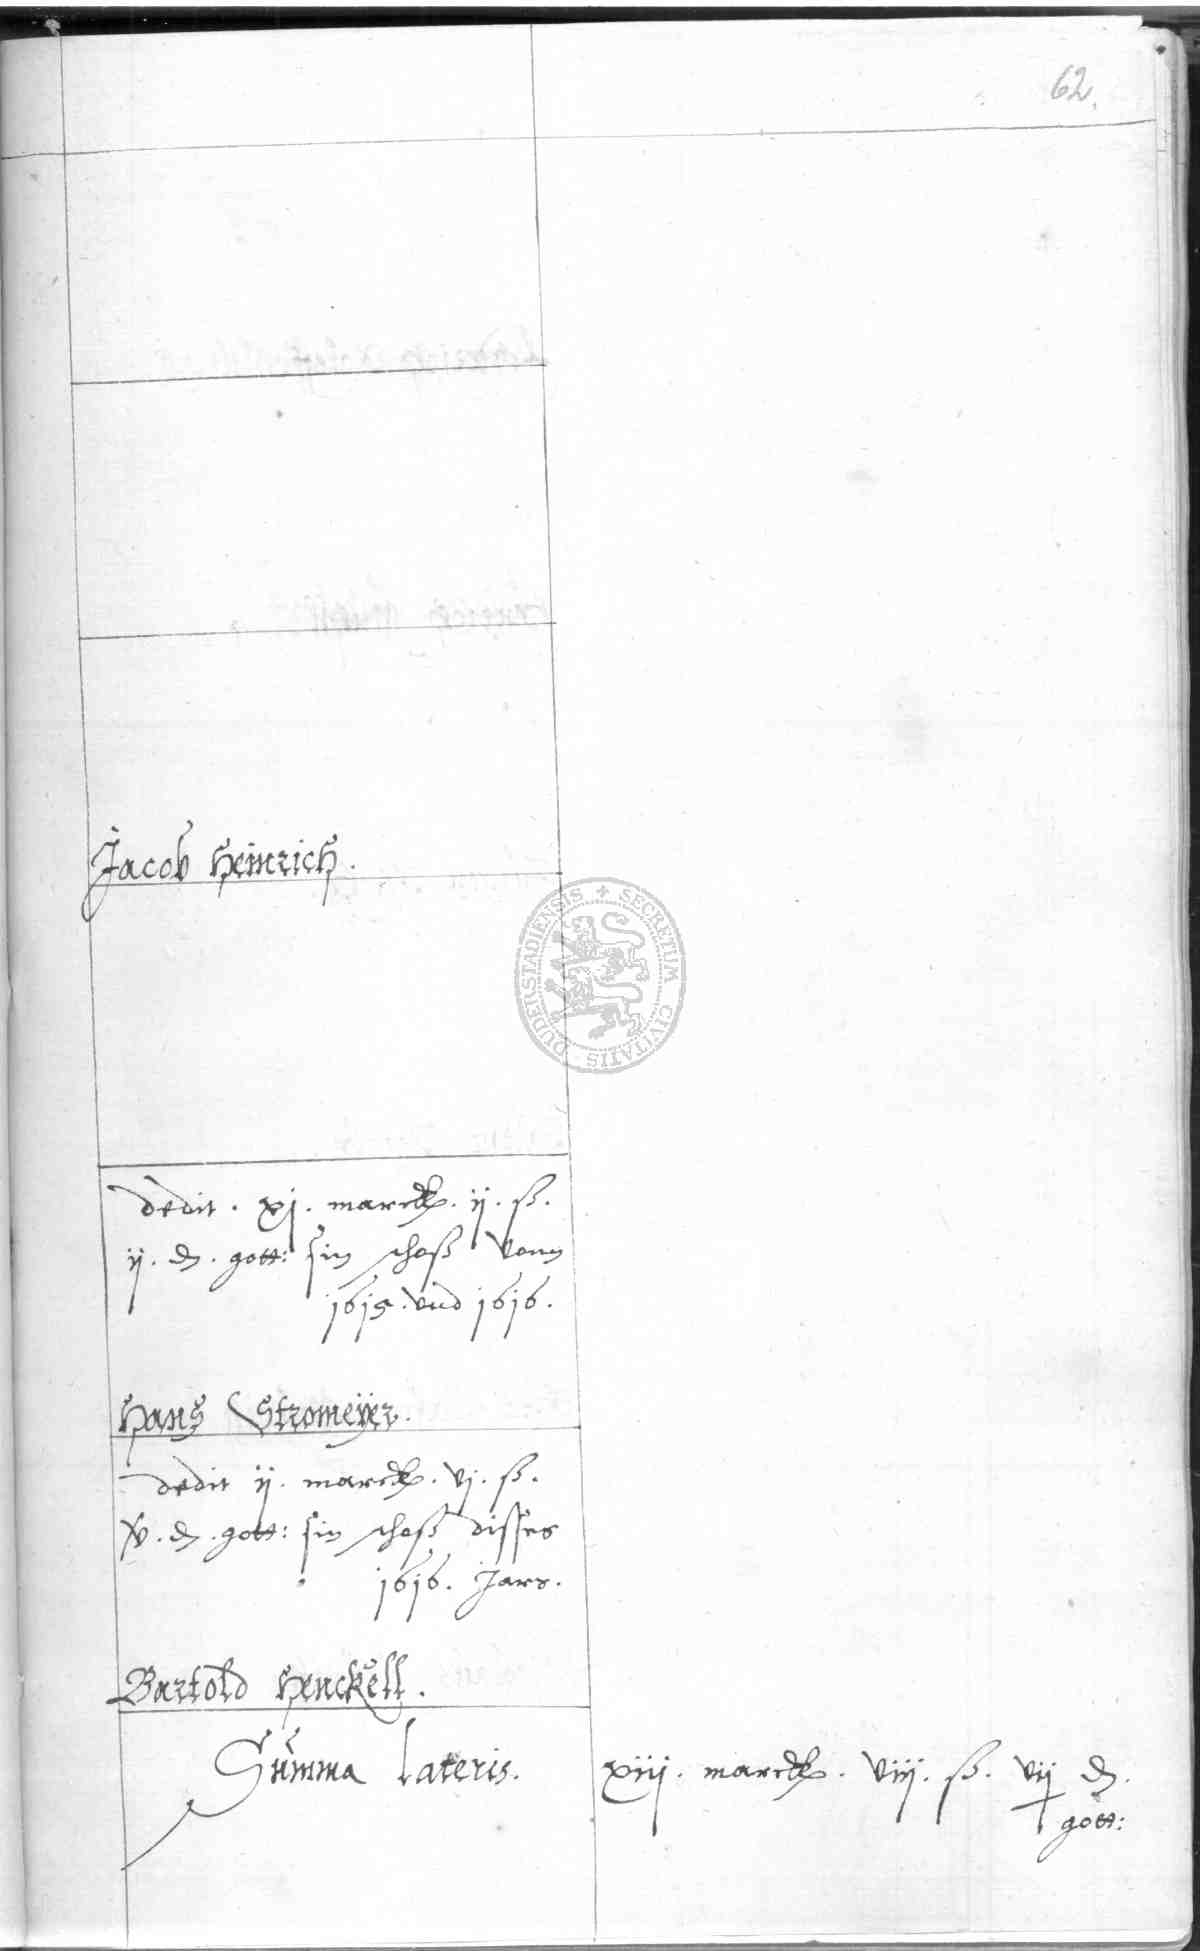 62.
Jacob Heinrich.
SECRETUM CIVITATIS DUDERSTADIENSIS
dedit . xj . marck . ij . ß .
ij . d . gott: sin schoß vonn
1615 . vnd 1616 .
Hans Stromeÿer.
dedit ij . marck . vj . ß .
v . d . gott: sin schoß disses
1616 . Jars .
Bartold Henckell .
Summa Lateris . xiij . marck . viij . ß . vij d .
gott: